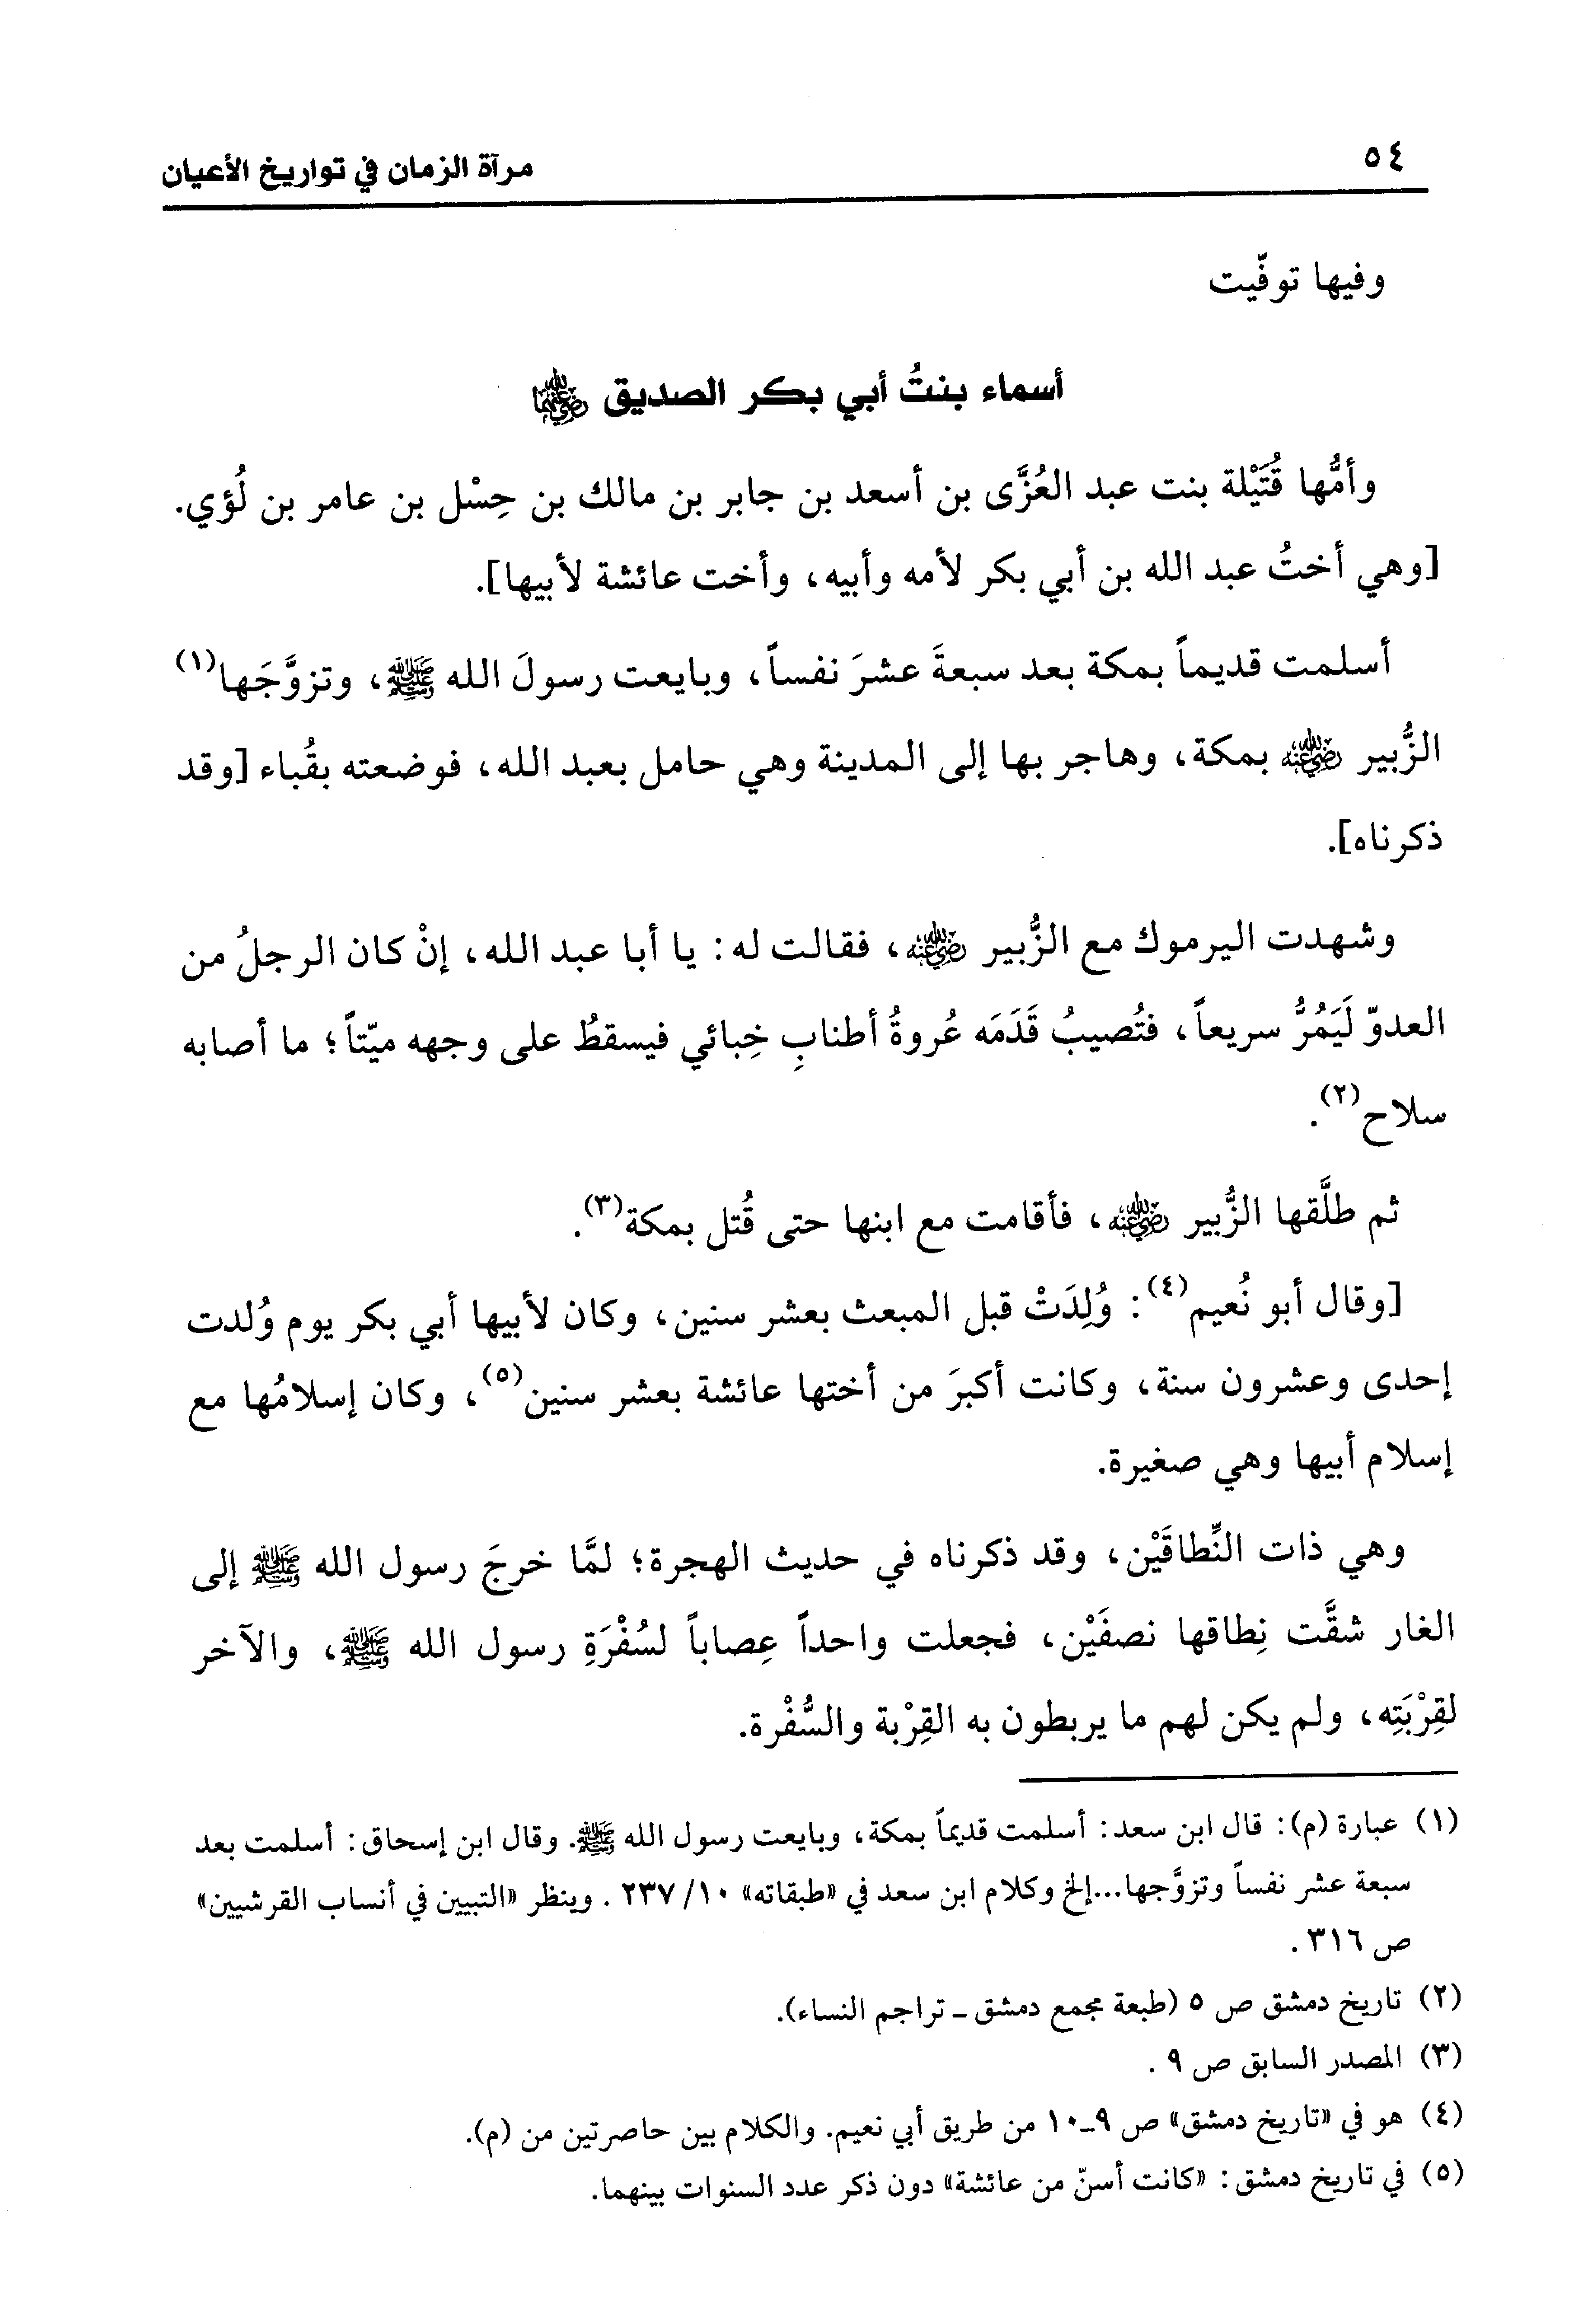 ٥٤
مرآة الزمان في تواريخ الأعيان
وفيها توفّيت
أسماء بنتُ أبي بكر الصديق رضي الله عنهما
وأمُّها قُتَيْلة بنت عبد العُزَّى بن أسعد بن جابر بن مالك بن حِسْل بن عامر بن لُؤي.
[وهي أختُ عبد الله بن أبي بكر لأمه وأبيه، وأخت عائشة لأبيها].
أسلمت قديماً بمكة بعد سبعةَ عشرَ نفساً، وبايعت رسولَ الله ﷺ، وتزوَّجَها(١)
الزُّبير رضي الله عنه بمكة، وهاجر بها إلى المدينة وهي حامل بعبد الله، فوضعته بقُباء [وقد
ذكرناه].
وشهدت اليرموك مع الزُّبير رضي الله عنه، فقالت له: يا أبا عبد الله، إنْ كان الرجلُ من
العدوّ لَيَمُرُّ سريعاً، فتُصيبُ قَدَمَه عُروةُ أطنابِ خِبائي فيسقطُ على وجهه ميّتاً؛ ما أصابه
سلاح(٢).
ثم طلَّقها الزُّبير رضي الله عنه، فأقامت مع ابنها حتى قُتل بمكة(٣).
[وقال أبو نُعيم(٤): وُلِدَتْ قبل المبعث بعشر سنين، وكان لأبيها أبي بكر يوم وُلدت
إحدى وعشرون سنة، وكانت أكبرَ من أختها عائشة بعشر سنين(٥)، وكان إسلامُها مع
إسلام أبيها وهي صغيرة.
وهي ذات النِّطاقَيْن، وقد ذكرناه في حديث الهجرة؛ لمَّا خرجَ رسول الله ﷺ إلى
الغار شقَّت نِطاقها نصفَيْن، فجعلت واحداً عِصاباً لسُفْرَةِ رسول الله ﷺ، والآخر
لقِرْبَتِه، ولم يكن لهم ما يربطون به القِرْبة والسُّفْرة.
(١) عبارة (م): قال ابن سعد: أسلمت قديماً بمكة، وبايعت رسول الله ﷺ. وقال ابن إسحاق: أسلمت بعد
سبعة عشر نفساً وتزوَّجها...إلخ وكلام ابن سعد في «طبقاته» ١٠/ ٢٣٧. وينظر «التبيين في أنساب القرشيين»
ص ٣١٦.
(٢) تاريخ دمشق ص ٥ (طبعة مجمع دمشق ـ تراجم النساء).
(٣) المصدر السابق ص ٩.
(٤) هو في «تاريخ دمشق» ص ٩ـ١٠ من طريق أبي نعيم. والكلام بين حاصرتين من (م).
(٥) في تاريخ دمشق: «كانت أسنّ من عائشة» دون ذكر عدد السنوات بينهما.